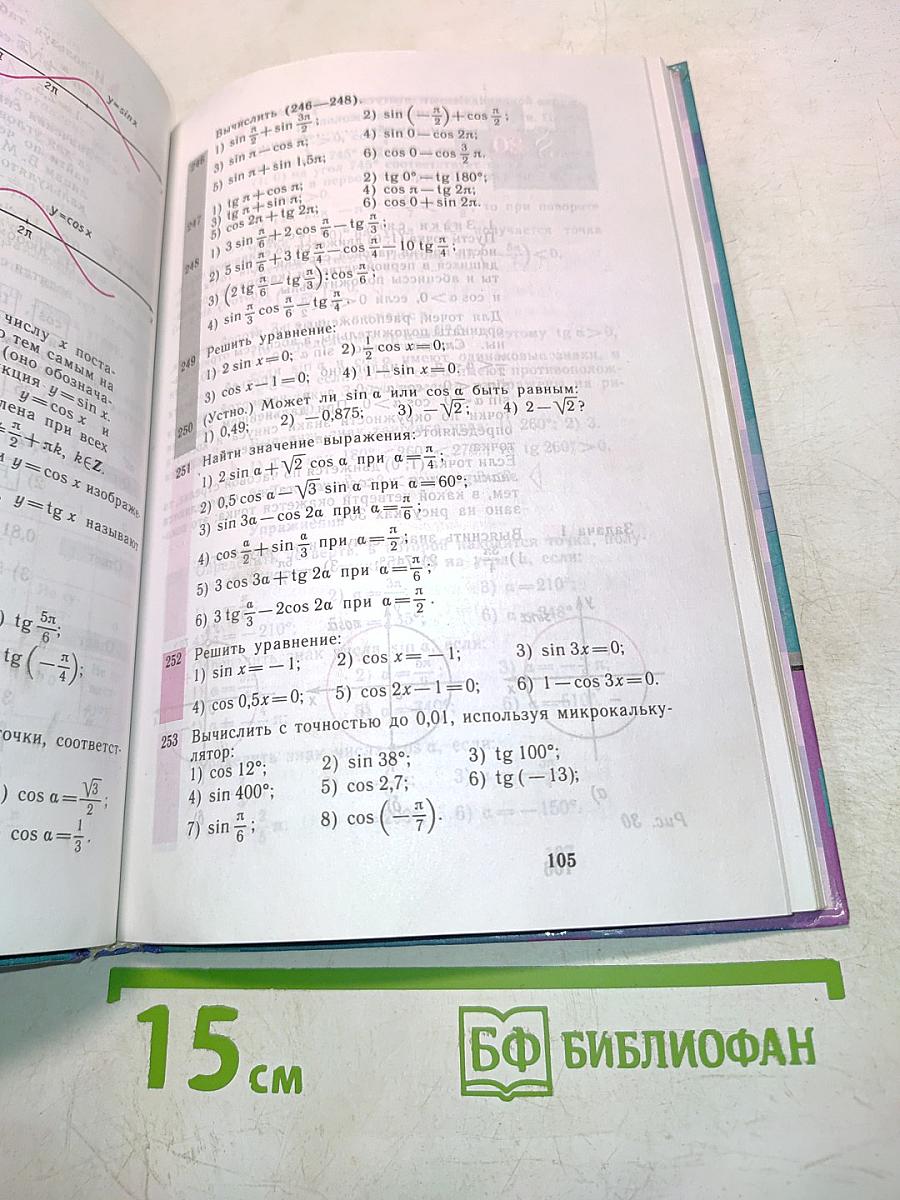 2π
y=sin x
y=cos x
2π
числу x поста-
о тем самым на
(оно обознача-
кция y=sin x.
y=cos x и
лена при всех
≠π/2+πk, k∈Z.
y=cos x изображе
y=tg x называют
) tg 5π/6;
tg(−π/4);
точки, соответст-
) cos α=√3/2;
cos α=1/3.
Вычислить (246—248).
246 1) sin π/2+sin 3π/2; 2) sin(−π/2)+cos π/2;
3) sin π−cos π; 4) sin 0−cos 2π;
5) sin π+sin 1,5π; 6) cos 0−cos 3/2 π.
247 1) tg π+cos π; 2) tg 0°−tg 180°;
3) tg π+sin π; 4) cos π−tg 2π;
5) cos 2π+tg 2π; 6) cos 0+sin 2π.
248 1) 3 sin π/6+2 cos π/6−tg π/3;
2) 5 sin π/6+3 tg π/4−cos π/4−10 tg π/4;
3) (2 tg π/6−tg π/3):cos π/6;
4) sin π/3 cos π/6−tg π/4.
249 Решить уравнение:
1) 2 sin x=0; 2) 1/2 cos x=0;
3) cos x−1=0; 4) 1−sin x=0.
250 (Устно.) Может ли sin α или cos α быть равным:
1) 0,49; 2) −0,875; 3) −√2; 4) 2−√2?
251 Найти значение выражения:
1) 2 sin α+√2 cos α при α=π/4;
2) 0,5 cos α−√3 sin α при α=60°;
3) sin 3α−cos 2α при α=π/6;
4) cos α/2+sin α/3 при α=π/2;
5) 3 cos 3α+tg 2α при α=π/6;
6) 3 tg α/3−2cos 2α при α=π/2.
252 Решить уравнение:
1) sin x=−1; 2) cos x=−1; 3) sin 3x=0;
4) cos 0,5x=0; 5) cos 2x−1=0; 6) 1−cos 3x=0.
253 Вычислить с точностью до 0,01, используя микрокальку-
лятор:
1) cos 12°; 2) sin 38°; 3) tg 100°;
4) sin 400°; 5) cos 2,7; 6) tg(−13);
7) sin π/6; 8) cos(−π/7).
105
15 см
БФ БИБЛИОФАН